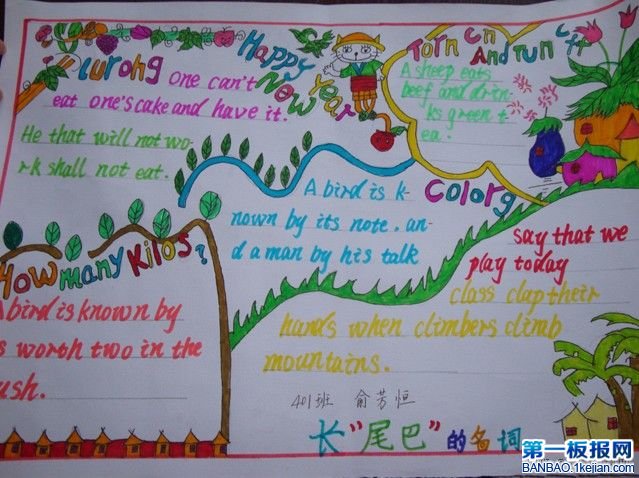 Plurong
one can't
eat one's cake and have it.
He that will not wo-
rk shall not eat.
Happy
New
Year
Torn cn
And run it
A sheep eats
beef and drin-
ks green t
ea.
A bird is k-
nown by its note, an-
d a man by his talk
Colorg
How many Kilos?
A bird is known by
s worth two in the
ush.
say that we
play today
class clap their
hands when climbers climb
mountains.
401班 俞芳恒
长"尾巴"的名词
第一板报网
BANBAO.1kejian.com